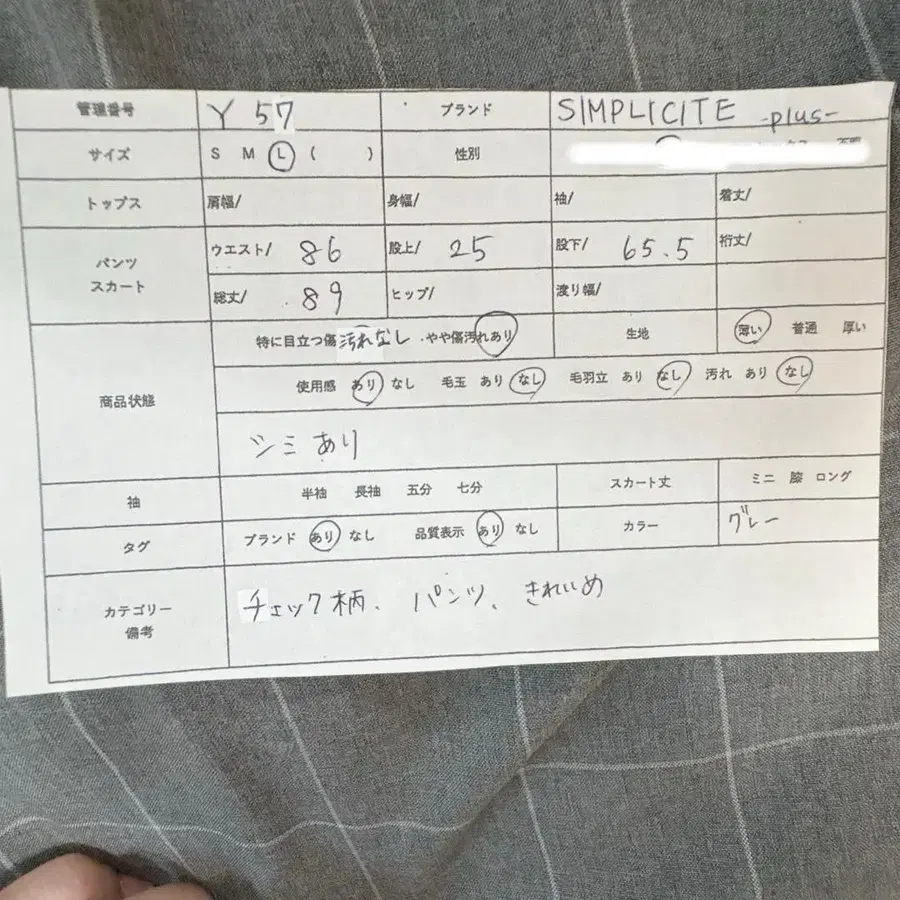 管理番号 Y 57 ブランド SIMPLICITE -plus-
サイズ S M L ( ) 性別
トップス 肩幅/ 身幅/ 袖/ 着丈/
パンツ スカート ウエスト/ 86 股上/ 25 股下/ 65.5 裄丈/
総丈/ 89 ヒップ/ 渡り幅/
商品状態 特に目立つ傷汚れなし ・やや傷汚れあり 生地 薄い 普通 厚い
使用感 あり なし 毛玉 あり なし 毛羽立 あり なし 汚れ あり なし
シミあり
袖 半袖 長袖 五分 七分 スカート丈 ミニ 膝 ロング
タグ ブランド あり なし 品質表示 あり なし カラー グレー
カテゴリー 備考 チェック柄、パンツ、きれいめ